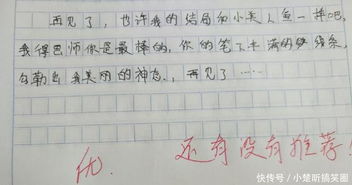 再见了，也许我的结局和小美人鱼一样吧，
我得巴师你是最棒的，你的笔下丰满的线条，
勾勒出我美丽的神态，再见了……
优.
还有没有推荐!
快传号／小楚昕搞笑圈